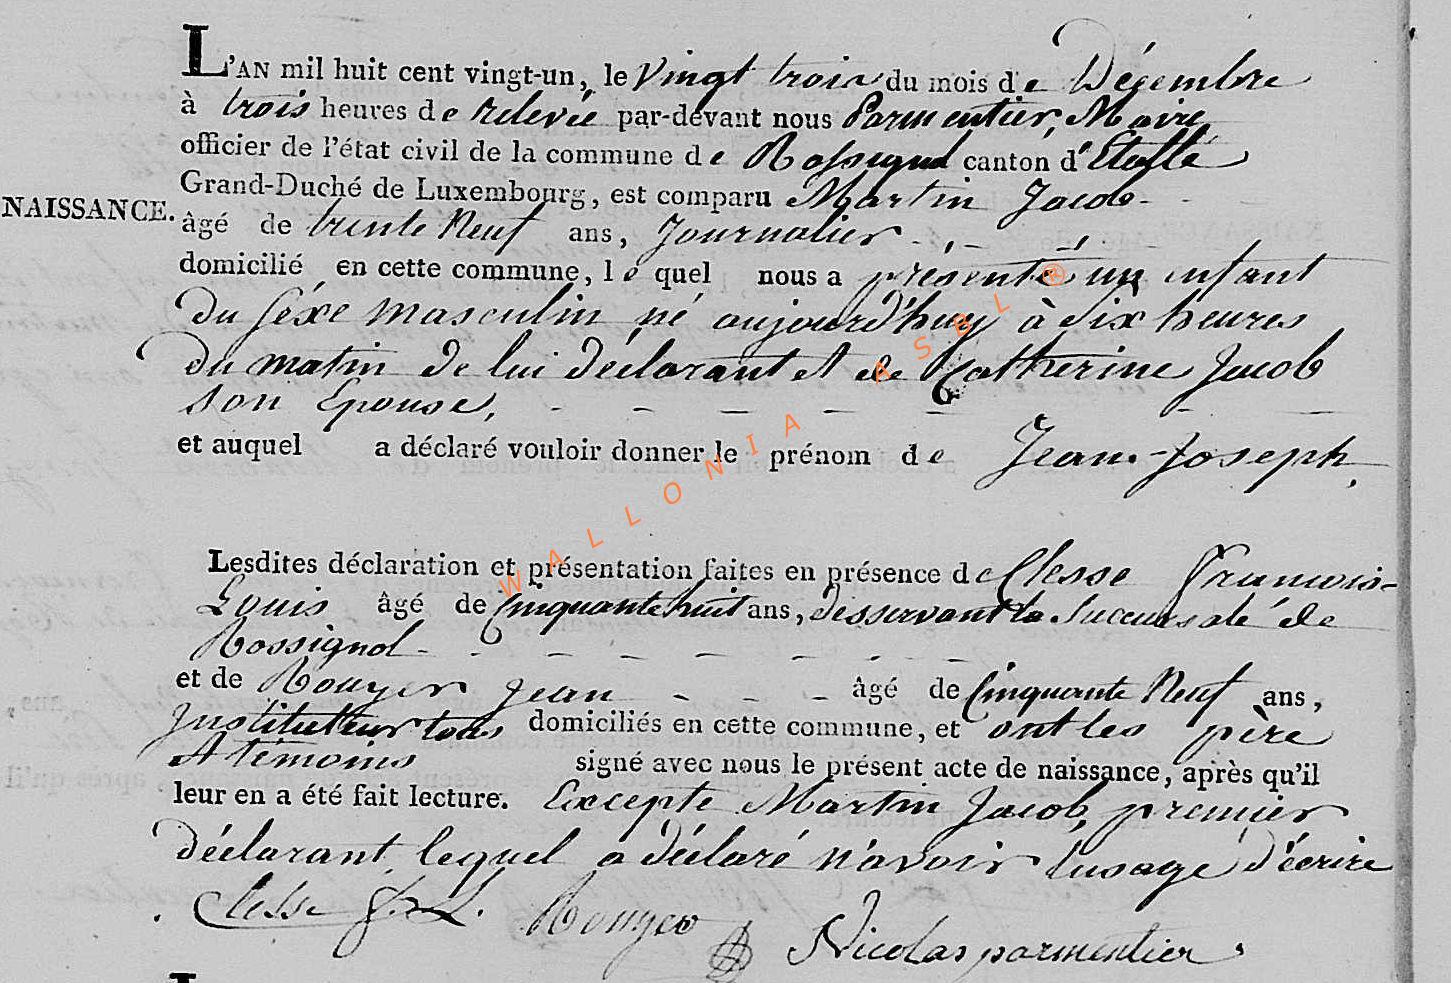 L'AN mil huit cent vingt-un, le Vingt trois du mois de Décembre
à trois heures de relevée par-devant nous Parmentier, Maire
officier de l'état civil de la commune de Rossignol canton d'Etalle
Grand-Duché de Luxembourg, est comparu Martin Jacob
NAISSANCE.
âgé de trente Neuf ans, Journalier
domicilié en cette commune, lequel nous a présenté un enfant
du séxe masculin né aujourd'huy à Six heures
du matin de lui déclarant et de Catherine Jacob
son Epouse,
et auquel a déclaré vouloir donner le prénom de Jean-Joseph,
Lesdites déclaration et présentation faites en présence de Clesse François-
Louis âgé de Cinquante huit ans, desservant la Succursale de
Rossignol
et de Rouyer Jean âgé de Cinquante Neuf ans,
Instituteur tous domiciliés en cette commune, et ont les père
et témoins signé avec nous le présent acte de naissance, après qu'il
leur en a été fait lecture. Excepté Martin Jacob, premier
déclarant lequel a déclaré n'avoir lusage d'écrire
Clesse f. L. Rouyer Nicolas parmentier
WALLONIA ASBL ®